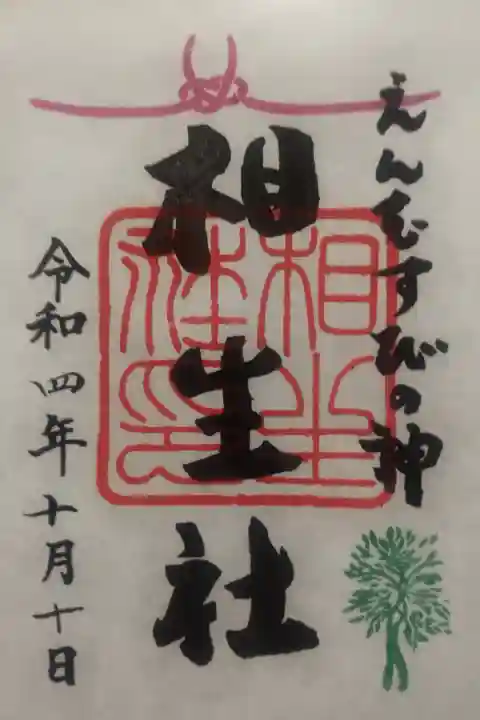 えんむすびの神
相生社
相生社印
令和四年十月十日